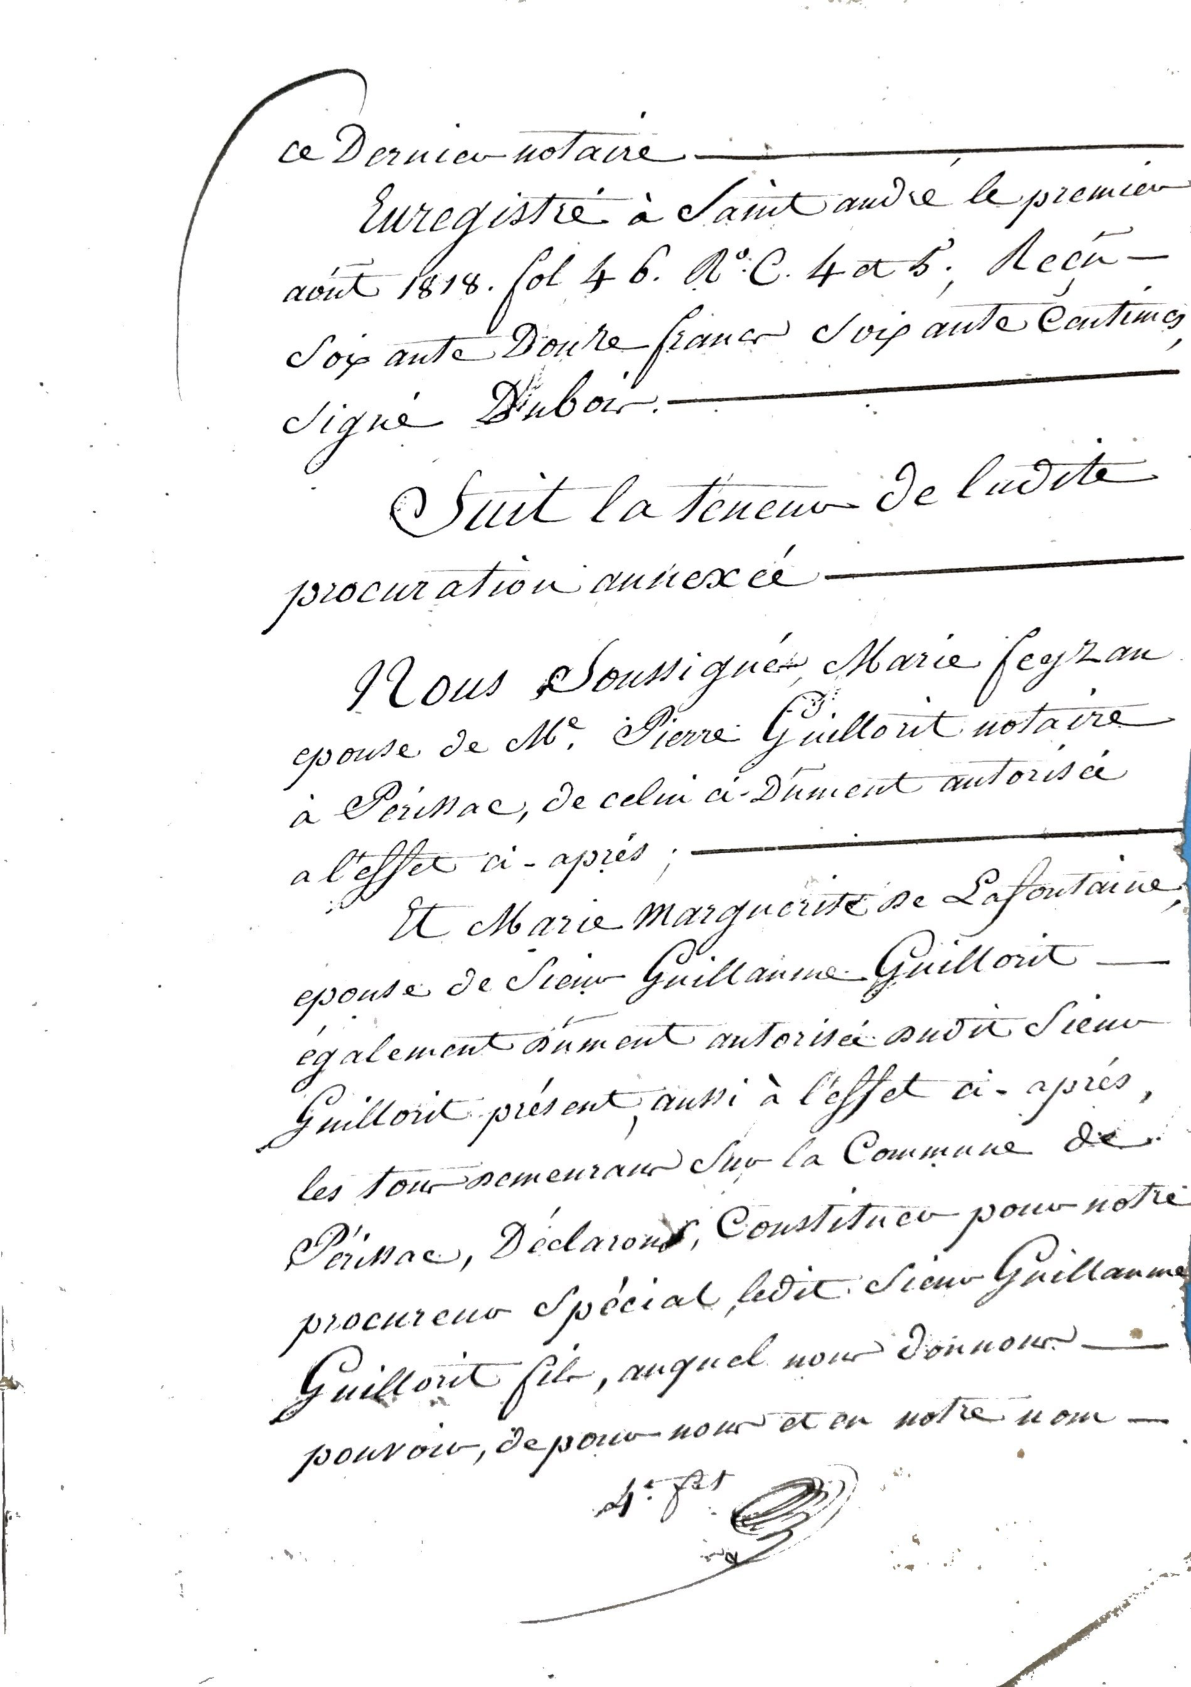 ce Dernier notaire
Enregistré à Saint andré le premier
août 1818. fol 46. Rº. C. 4 et 5, Reçu
Soixante Douze francs Soixante Centimes,
Signé Dubois.
Suit la teneur de ladite
procuration annexée
Nous Soussignés, Marie feyzau
epouse de Me. Pierre Guillorit notaire
à Périssac, de celui ci-Dûment autorisée
a l'effet ci-après;
Et Marie Marguerite De Lafontaine,
epouse de Sieur Guillaume Guillorit
également Dûment autorisée Dudit Sieur
Guillorit présent, aussi à l'effet ci-après,
les tous Demeurans Sur la Commune de
Périssac, Déclarons, Constituer pour notre
procureur Spécial, ledit Sieur Guillaume
Guillorit fils, auquel nous donnons
pouvoir, de pour nous et en notre nom
4e. fet